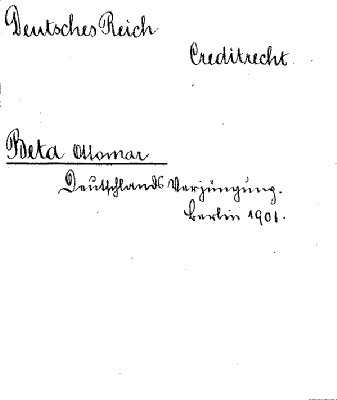 Deutsches Reich
Creditrecht.
Beta Ottomar
Deutschlands Verjüngung.
Berlin 1901.